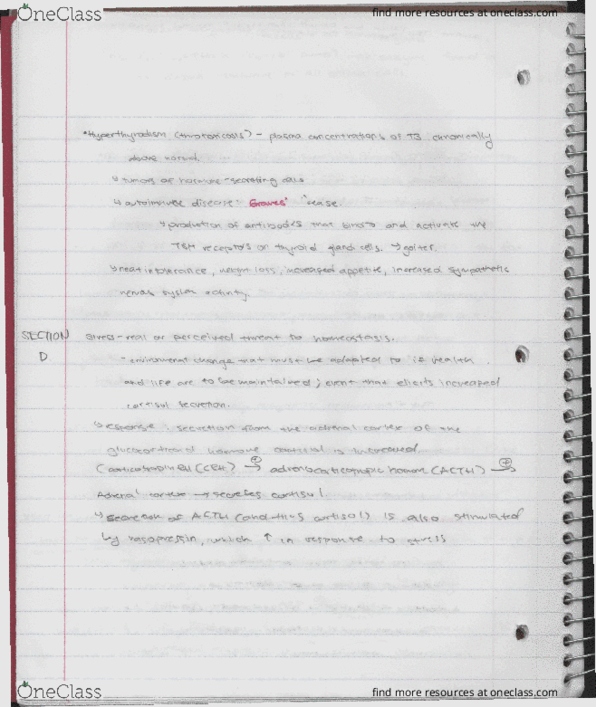 OneClass
find more resources at oneclass.com
*Hyperthyroidism (thyrotoxicosis) - plasma concentrations of T3 chronically
above normal
↳ tumors of hormone-secreting cells
↳ autoimmune disease - Graves'
↳ production of antibodies that bind to and activate the
TSH receptors on thyroid gland cells. → goiter.
↳ heat intolerance, weight loss, increased appetite, increased sympathetic
nervous system activity.
SECTION D
Stress - real or perceived threat to homeostasis.
- environmental change that must be adapted to if health
and life are to be maintained; event that elicits increased
cortisol secretion.
↳ response: secretion from the adrenal cortex of the
glucocorticoid hormone cortisol is increased.
(CRH) ⊕→ adrenocorticotropic hormone (ACTH) ⊕→
Adrenal cortex → secretes cortisol
↳ secretion of ACTH (and thus cortisol) is also stimulated
by vasopressin, which ↑ in response to stress
OneClass
find more resources at oneclass.com